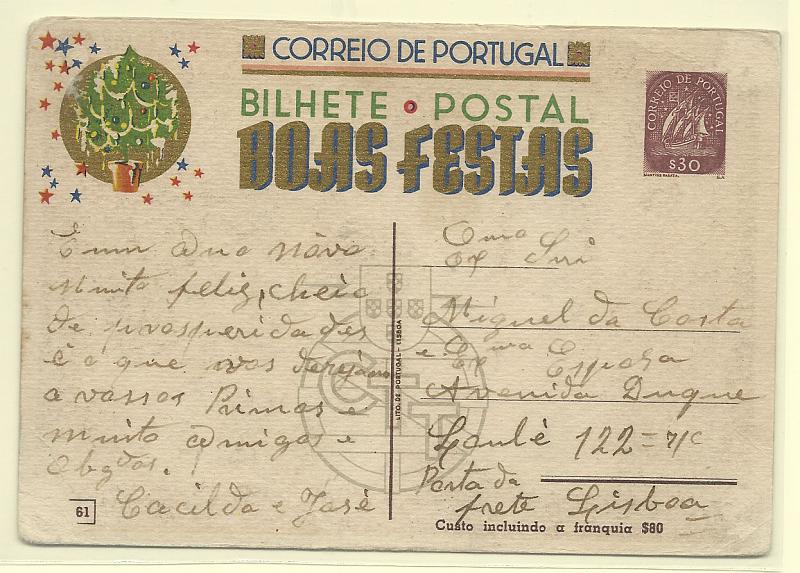 CORREIO DE PORTUGAL
BILHETE • POSTAL
BOAS FESTAS
CORREIO DE PORTUGAL
$30
MARTINS BARATA.
E um Ano nôvo
muito feliz, cheio
de prosperidades
é o que vos desejam
a vossos Primos e
muito amigos e
Obgdos.
Cacilda e José
61
LITO. DE PORTUGAL - LISBOA
CTT
Exmo
Snr
Miguel da Costa
e Exma Esposa
Avenida Duque
Loulé 122 = r/c
Porta da
frete Lisboa
Custo incluindo a franquia $80